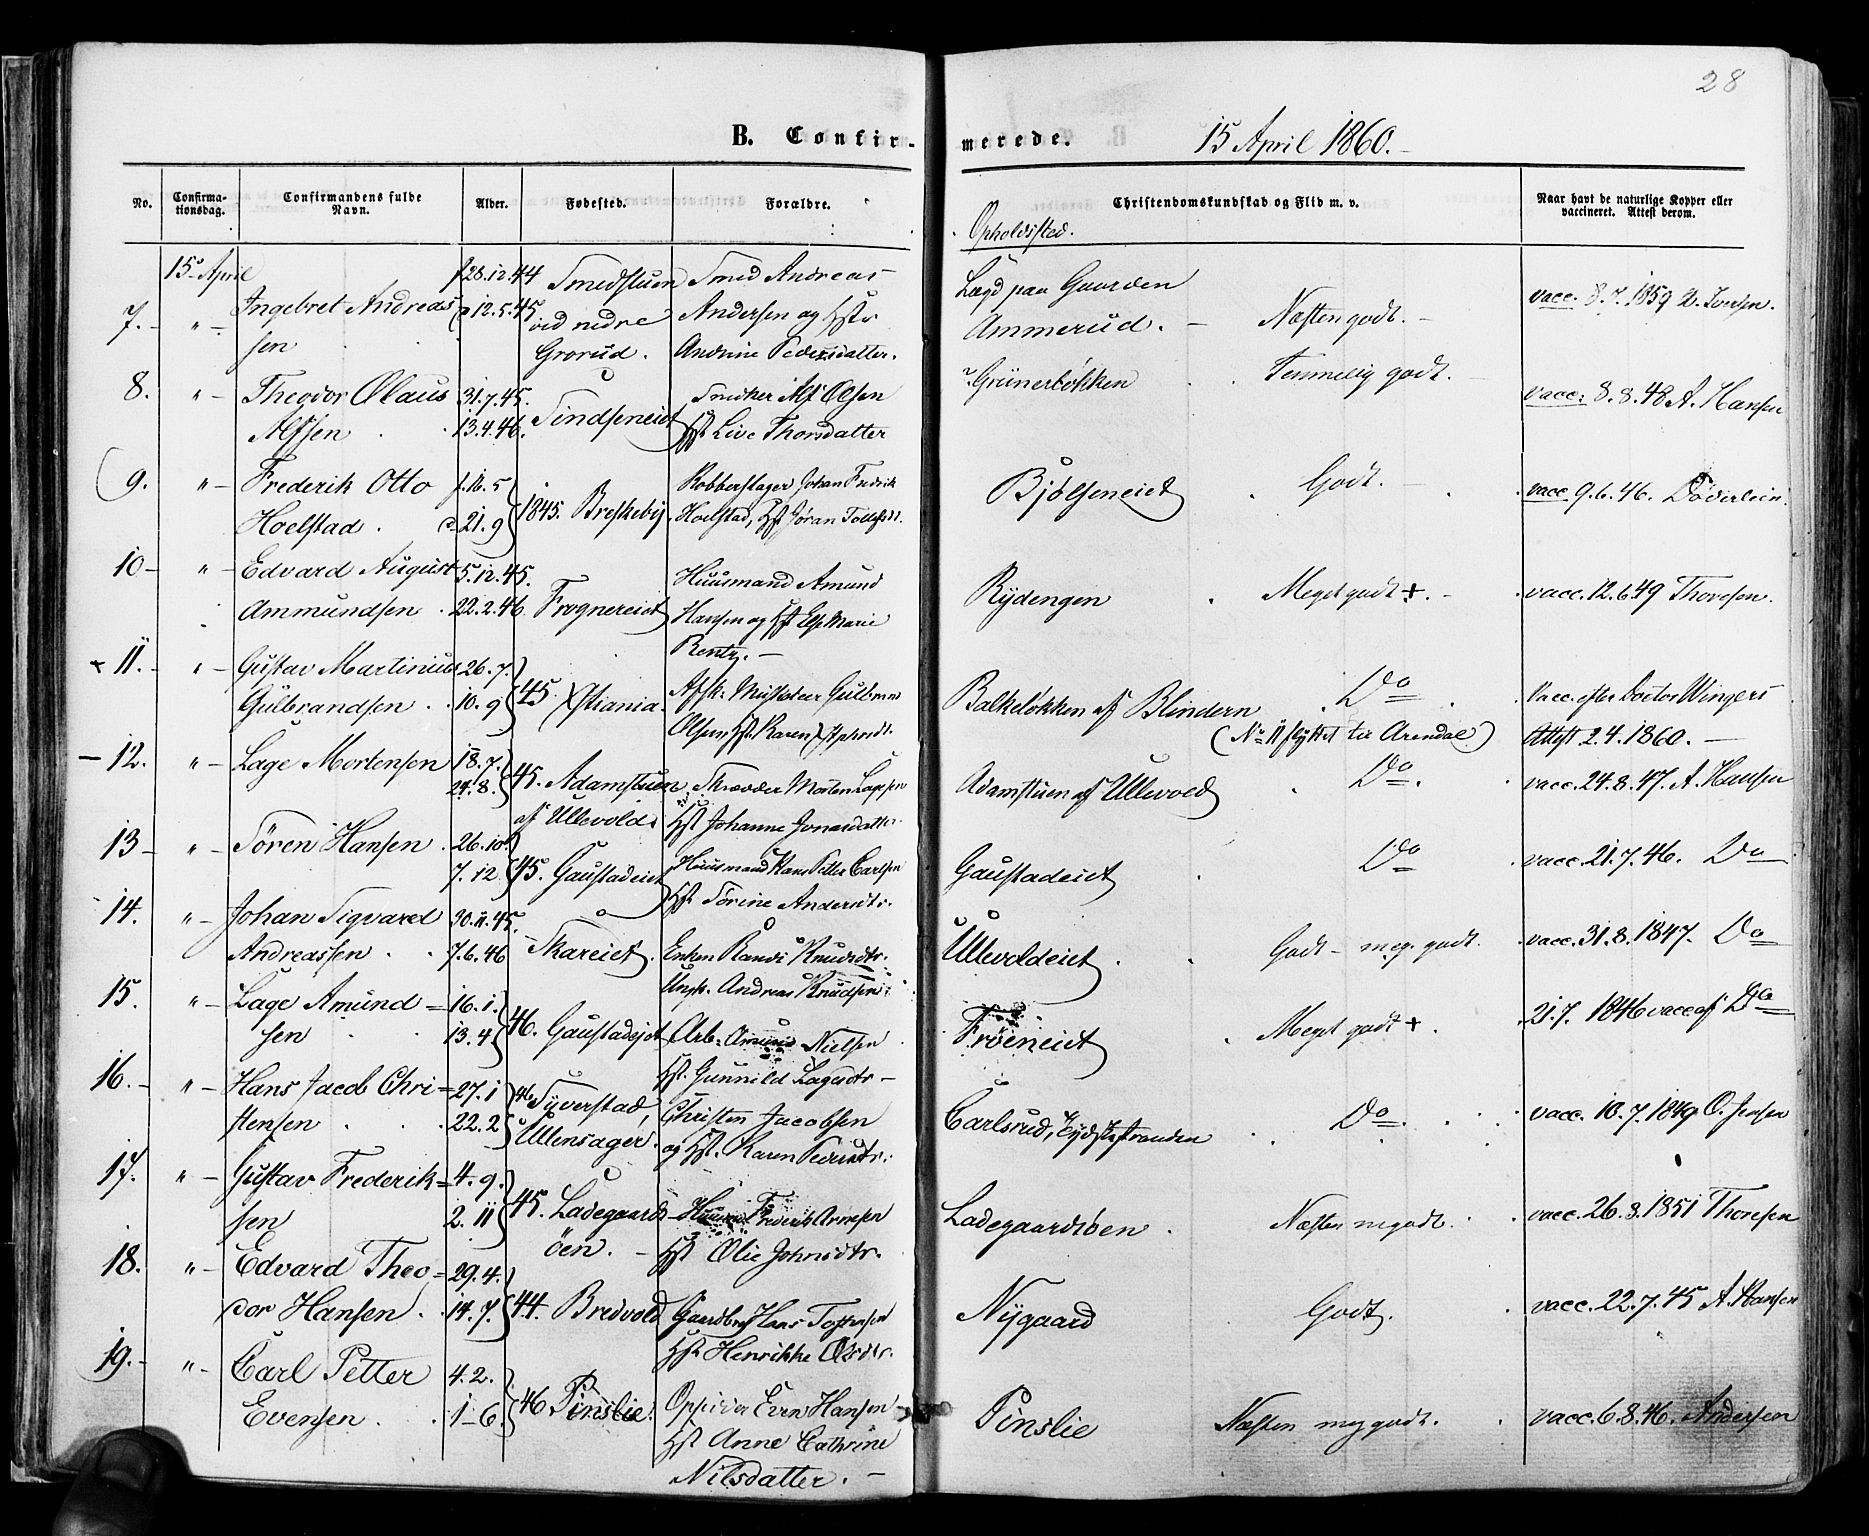 28
B. Confir-
merede.
15 April 1860.-
No.
Confirma-
tionsdag.
Confirmandens fulde
Navn.
Alder.
Fødested.
Forældre.
Christendomskundskab og Flid m. v.
Naar havt de naturlige Kopper eller
vaccineret. Attest derom.
Opholdssted.
15 April
7.- " - Ingebret Andreas
sen
f 28.12.44
d 12.5.45.
Smedstuen
ved nedre
Grorud.
Smed Andreas
Andersen og Hstr.
Andrine Pedersdatter.
Lægd paa Gaarden
Ammerud. -
Næsten godt. -
vacc. 8.7.1859 Iversen.
8. " - Theodor Olaus
Alfsen
31.7.45.
13.4.46.
Sindseneiet
Snedker Alf Olsen
Hst Live Thorsdatter
Grünerløkken
Temmelig godt.
vacc: 8.8.48 A. Hansen
9. " - Frederik Otto
Hoelstad.
f. 16.5
d. 21.9
1845. Breskeby
Kobberslager Johan Fredrik
Hoelstad, Hst Jøran
Bjølseneiet
Godt.
vacc. 9.6.46. Døderlein.
10- " - Edvard August
Ammundsen
5.12.45.
22.2.46
Frognereiet
Huusmand Amund
Hansen og Hst Else Marie
Rentz. -
Rydengen
Meget godt +. -
vacc. 12.6.49 Thoresen.
+ 11.- " - Gustav Martinius
Gulbrandsen
26.7.
10.9
45. Xstiania.
Afsk. Gulbrand
Olsen Hst. Karen
Balkeløkken af Blindern
Do
(No 11 flyttet til Arendal.)
Vacc. efter Doctor Wingers
Attest 2.4.1860. -
- 12. " - Lage Mortensen
18.7.
24.8.
45. Adamstuen
af Ullevold.
Skrædder Morten
Hst Johanne Jonasdatter
Adamstuen af Ullevold
Do.
vacc. 24.8.47. A. Hansen
13- " - Sören Hansen
26.10.
7.12
45. Gaustadeiet
Huusmand Hans Petter Carlsen
Hst Sörine Andersdtr.
Gaustadeiet
Do
vacc. 21.7.46. Do
14. " - Johan Sigvard
Andreassen
30.11.45.
7.6.46
Skareiet.
Enken Randi Knudsdtr.
Ungk. Andreas Knudsen
Ullevoldeiet
Godt - meg. godt.
vacc. 31.8.1847. Do
15. " - Lage Amund=
sen
16.1.
13.4
46. Gaustadejet
Arb. Amund Nielsen
Hst. Gunnild Lagesdtr -
Frøeneiet
Meget godt +.
21.7. 1846 vacc af Do
16.- " - Hans Jacob Chri=
stensen
27.1
22.2
46 Syverstad,
Ullensager.
Christen Jacobsen
og Hst. Karen Pedersdtr.
Carlsrud, Tydskestranden
Do.
vacc. 10.7.1849 O. Jensen
17. " - Gustav Frederik=
sen
4.9.
2.11
45. Ladegaards
øen. -
Huusm Frederik Arnesen
Hst Olie Johnsdtr.
Ladegaardsöen
Næsten m godt.
vacc. 26.8.1851 Thoresen
18. " - Edvard Theo=
dor Hansen
29.4.
14.7.
44. Bredvold
Gaardbr Hans Tostensen
Hst Henrikke Olsdtr.
Nygaard
Godt.
vacc. 22.7.45 A. Hansen
19.- " - Carl Petter
Evensen
4.2.
1-6.
46 Pinslie.
Opsidder Even Hansen
Hst Anne Cathrine
Nilsdatter. -
Pinslie
Næsten meg godt.
vacc. 6.8.46. Andersen